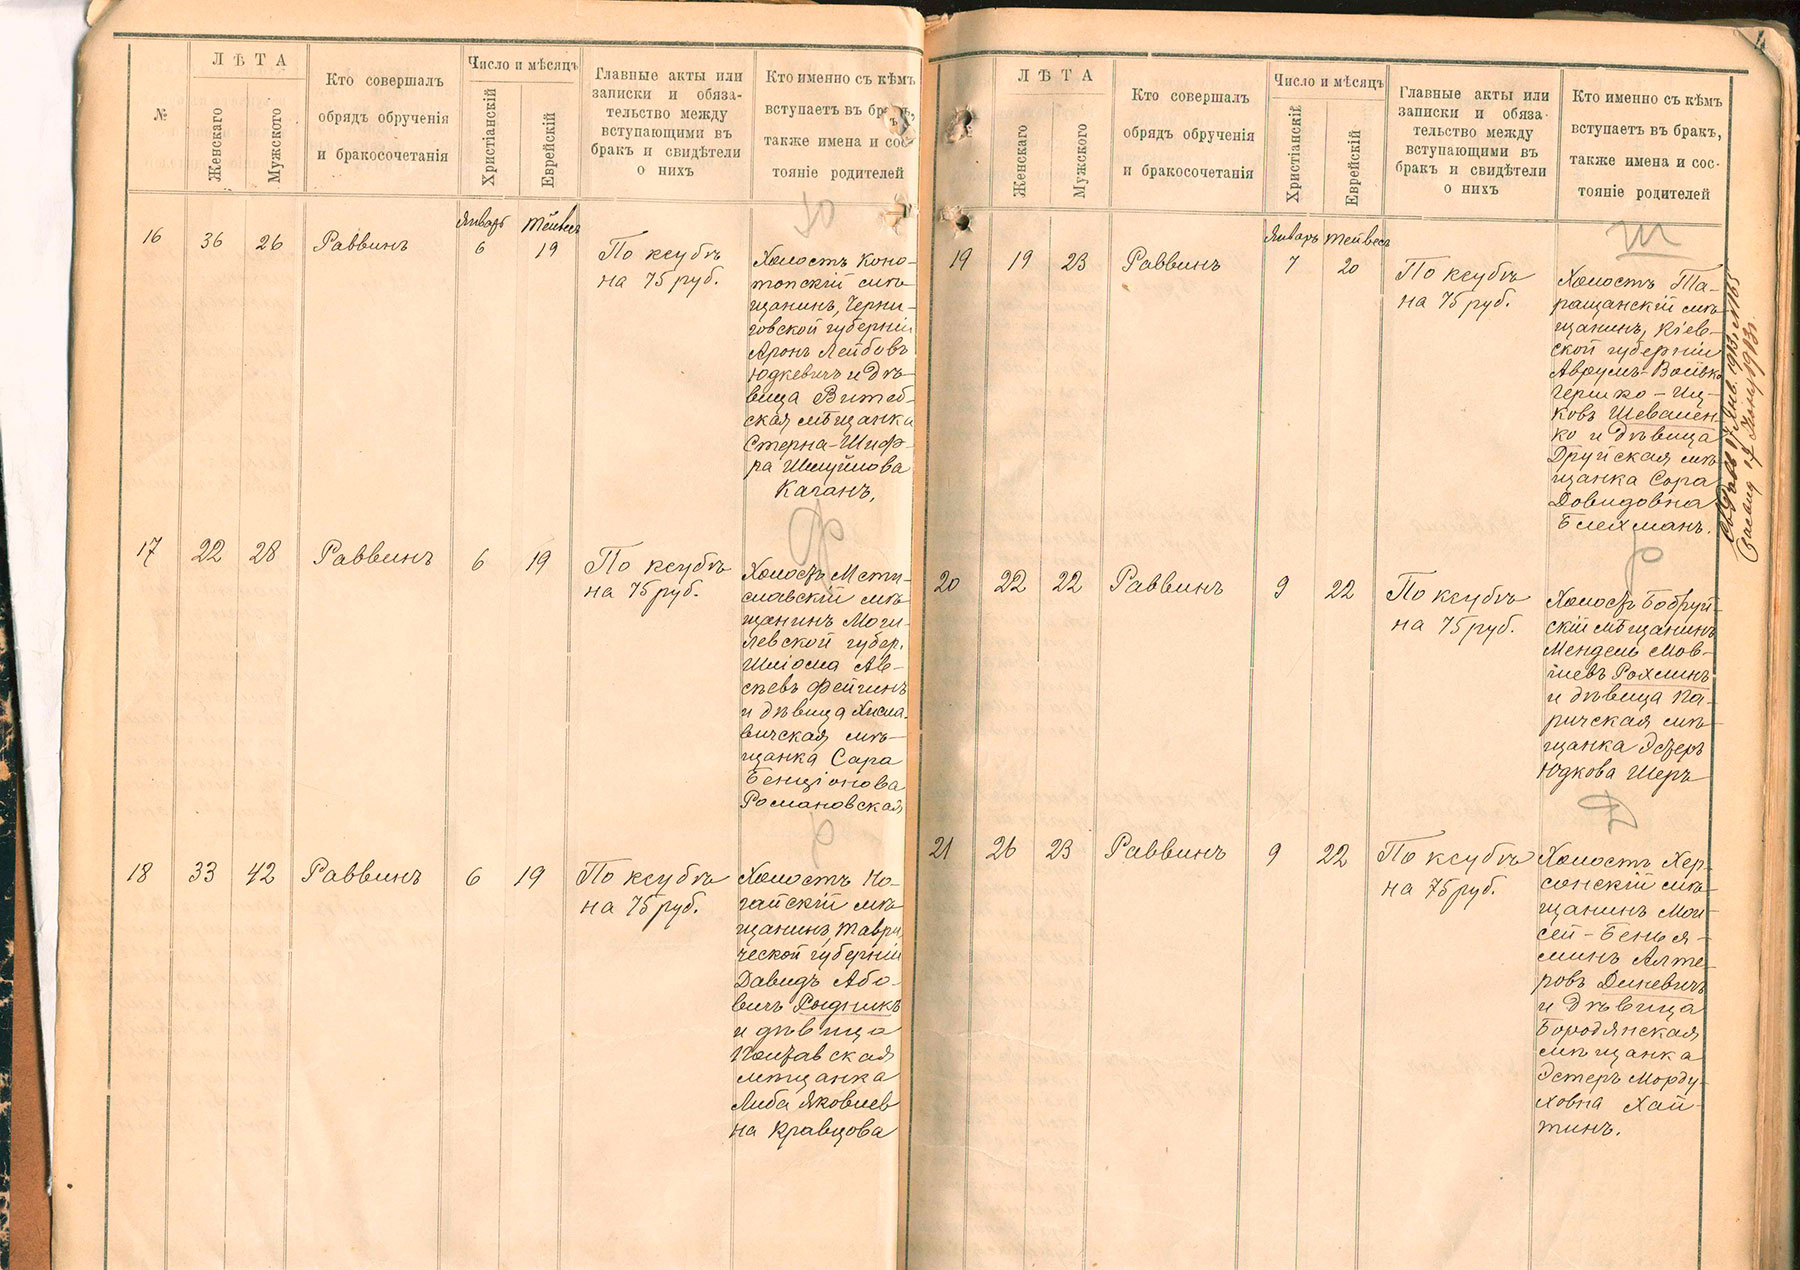 №
ЛѢТА
Женскаго
Мужского
Кто совершалъ
обрядъ обрученія
и бракосочетанія
Число и мѣсяцъ
Христіанскій
Еврейскій
Главные акты или
записки и обяза-
тельство между
вступающими въ
бракъ и свидѣтели
о нихъ
Кто именно съ кѣмъ
вступаетъ въ бракъ,
также имена и сос-
тояніе родителей
Ю
Январь Тейвесъ
16 36 26 Раввинъ 6 19
По ксубѣ
на 75 руб.
Холостъ Коно-
топскій мѣ-
щанинъ, Черни-
говской губерніи
Аронъ Лейбовъ
Юдкевичъ и дѣ-
вица Витеб-
ская мѣщанка
Стерна-Шиф-
ра Шмуйлова
Каганъ,
Ф
17 22 28 Раввинъ 6 19
По ксубѣ
на 75 руб.
Холостъ Мсти-
славскій мѣ-
щанинъ Моги-
левской губер.
Шліома Ав-
сѣевъ Фейгинъ
и дѣвица Хисла-
вичская мѣ-
щанка Сара
Бенціонова
Романовская
Р
18 33 42 Раввинъ 6 19
По ксубѣ
на 75 руб.
Холостъ Но-
гайскій мѣ-
щанинъ, Таври-
ческой губерніи
Давидъ Або-
вичъ Рыдникъ
и дѣвица
Полтавская
мѣщанка
Либа Яковлев
на Кравцова
ЛѢТА
Женскаго
Мужского
Кто совершалъ
обрядъ обрученія
и бракосочетанія
Число и мѣсяцъ
Христіанскій
Еврейскій
Главные акты или
записки и обяза-
тельство между
вступающими въ
бракъ и свидѣтели
о нихъ
Кто именно съ кѣмъ
вступаетъ въ бракъ,
также имена и сос-
тояніе родителей
Ш
Январь Тейвесъ
19 19 23 Раввинъ 7 20
По ксубѣ
на 75 руб.
Холостъ Та-
ращанскій мѣ-
щанинъ, Кіев-
ской губерніи
Аврумъ-Волько
Гершко-Иц-
ковъ Шевшен-
ко и дѣвица
Друйская мѣ-
щанка Сора
Довидовна
Блейхманъ.
Янв. 1913 г. №165
17 1913 г.
Р
20 22 22 Раввинъ 9 22
По ксубѣ
на 75 руб.
Холостъ Бобруй-
скій мѣщанинъ
Мендель Мов-
шевъ Рохлинъ
и дѣвица Па-
ричская мѣ-
щанка Эстеръ
Юдкова Шеръ
Д
21 26 23 Раввинъ 9 22
По ксубѣ
на 75 руб.
Холостъ Хер-
сонскій мѣ-
щанинъ Мои-
сей-Бенья-
минъ Алте-
ровъ Диневичъ
и дѣвица
Бородянская
мѣщанка
Эстеръ Морду-
ховна Хай-
тинъ.